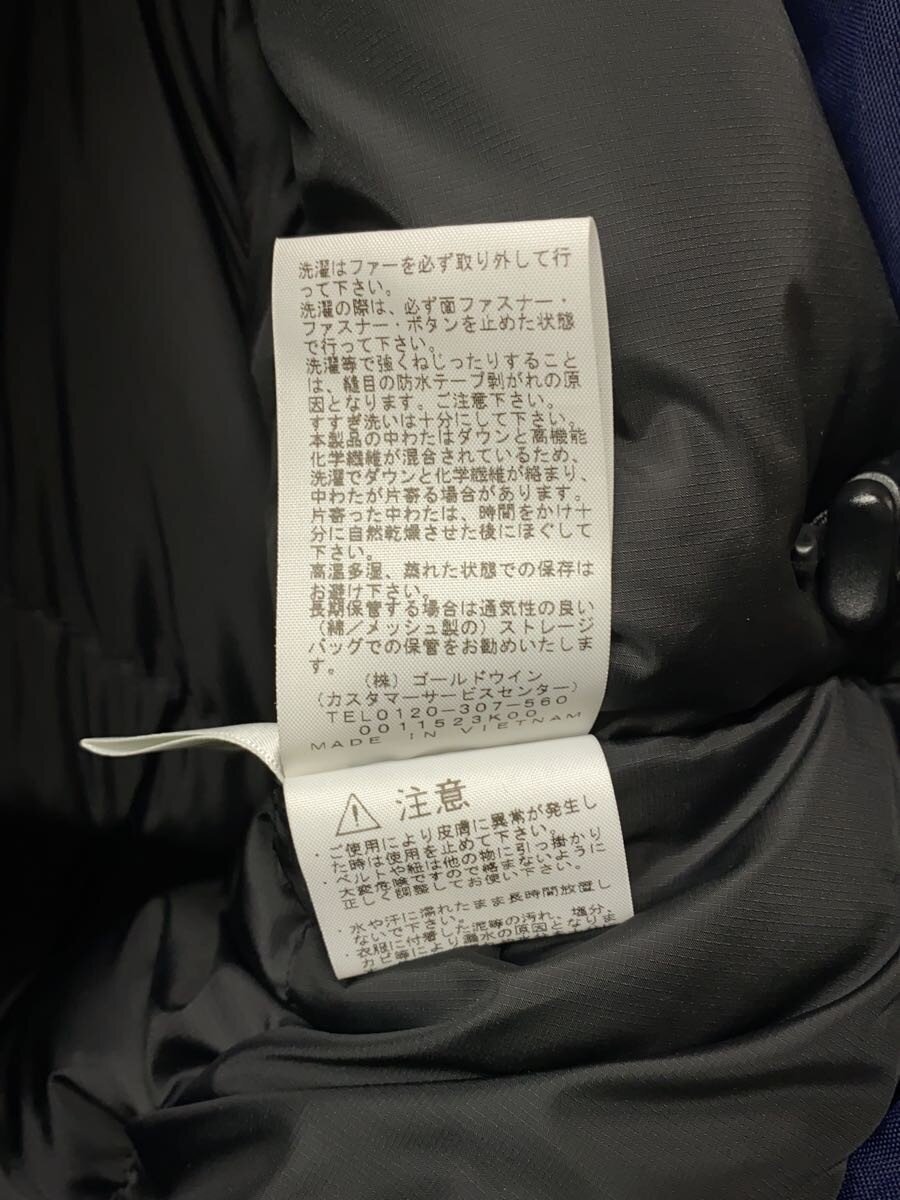 洗濯はファーを必ず取り外して行
って下さい。
洗濯の際は、必ず面ファスナー・
ファスナー・ボタンを止めた状態
で行って下さい。
洗濯等で強くねじったりすること
は、縫目の防水テープ剥がれの原
因となります。ご注意下さい。
すすぎ洗いは十分にして下さい。
本製品の中わたはダウンと高機能
化学繊維が混合されているため、
洗濯でダウンと化学繊維が絡まり、
中わたが片寄る場合があります。
片寄った中わたは、時間をかけ十
分に自然乾燥させた後にほぐして
下さい。
高温多湿、蒸れた状態での保存は
お避け下さい。
長期保管する場合は通気性の良い
(綿/メッシュ製の)ストレージ
バッグでの保管をお勧めいたしま
す。
(株)ゴールドウイン
(カスタマーサービスセンター)
TEL0120-307-560
0011523K00
MADE IN VIETNAM
注意
・ご使用により皮膚に異常が発生し
た時は使用を止めて下さい。
・ベルトや紐は他の物に引っ掛かり
大変危険ですので絡まないように
正しく調整してお使い下さい。
・水や汗に濡れたまま長時間放置し
ないで下さい。
・衣服に付着した泥等の汚れ、塩分、
カビ等により漏水の原因となりま